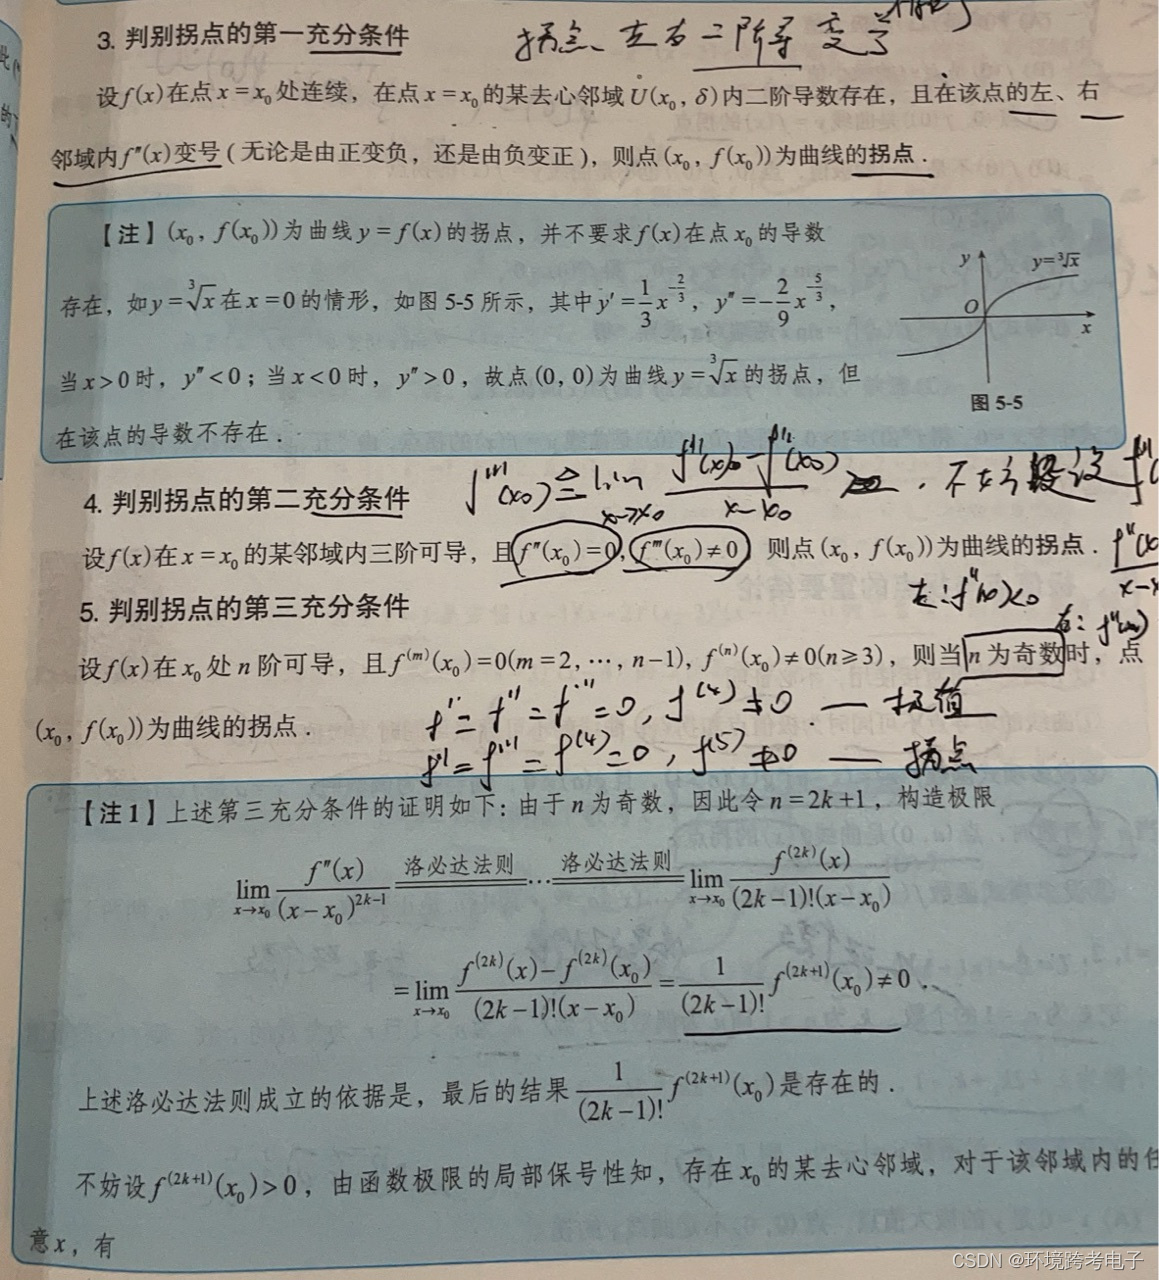 3. 判别拐点的第一充分条件
拐点、左右二阶导变号
设f(x)在点x=x₀处连续，在点x=x₀的某去心邻域U(x₀, δ)内二阶导数存在，且在该点的左、右
邻域内f″(x)变号(无论是由正变负，还是由负变正)，则点(x₀, f(x₀))为曲线的拐点.
【注】(x₀, f(x₀))为曲线y=f(x)的拐点，并不要求f(x)在点x₀的导数
存在，如y=∛x在x=0的情形，如图5-5所示，其中y′=1/3 x^(-2/3)，y″=-2/9 x^(-5/3)，
当x>0时，y″<0；当x<0时，y″>0，故点(0, 0)为曲线y=∛x的拐点，但
在该点的导数不存在.
y
y=∛x
O
x
图5-5
f‴(x₀)≜lim x→x₀ (f″(x)-f″(x₀))/(x-x₀)
4. 判别拐点的第二充分条件
设f(x)在x=x₀的某邻域内三阶可导，且f″(x₀)=0, f‴(x₀)≠0 则点(x₀, f(x₀))为曲线的拐点.
左: f″(x)<0
右: f″(x)
5. 判别拐点的第三充分条件
设f(x)在x₀处n阶可导，且f⁽ᵐ⁾(x₀)=0(m=2, ⋯, n-1), f⁽ⁿ⁾(x₀)≠0(n≥3)，则当n为奇数时，点
(x₀, f(x₀))为曲线的拐点.
f′=f″=f‴=0, f⁽⁴⁾≠0. — 极值
f″=f‴=f⁽⁴⁾=0, f⁽⁵⁾≠0 — 拐点
【注1】上述第三充分条件的证明如下：由于n为奇数，因此令n=2k+1，构造极限
lim x→x₀ f″(x)/(x-x₀)^(2k-1) 洛必达法则 ⋯ 洛必达法则 lim x→x₀ f^(2k)(x)/((2k-1)!(x-x₀))
=lim x→x₀ (f^(2k)(x)-f^(2k)(x₀))/((2k-1)!(x-x₀)) = 1/(2k-1)! f^(2k+1)(x₀)≠0.
上述洛必达法则成立的依据是，最后的结果 1/(2k-1)! f^(2k+1)(x₀)是存在的.
不妨设f^(2k+1)(x₀)>0，由函数极限的局部保号性知，存在x₀的某去心邻域，对于该邻域内的任
意x，有
CSDN @环境跨考电子